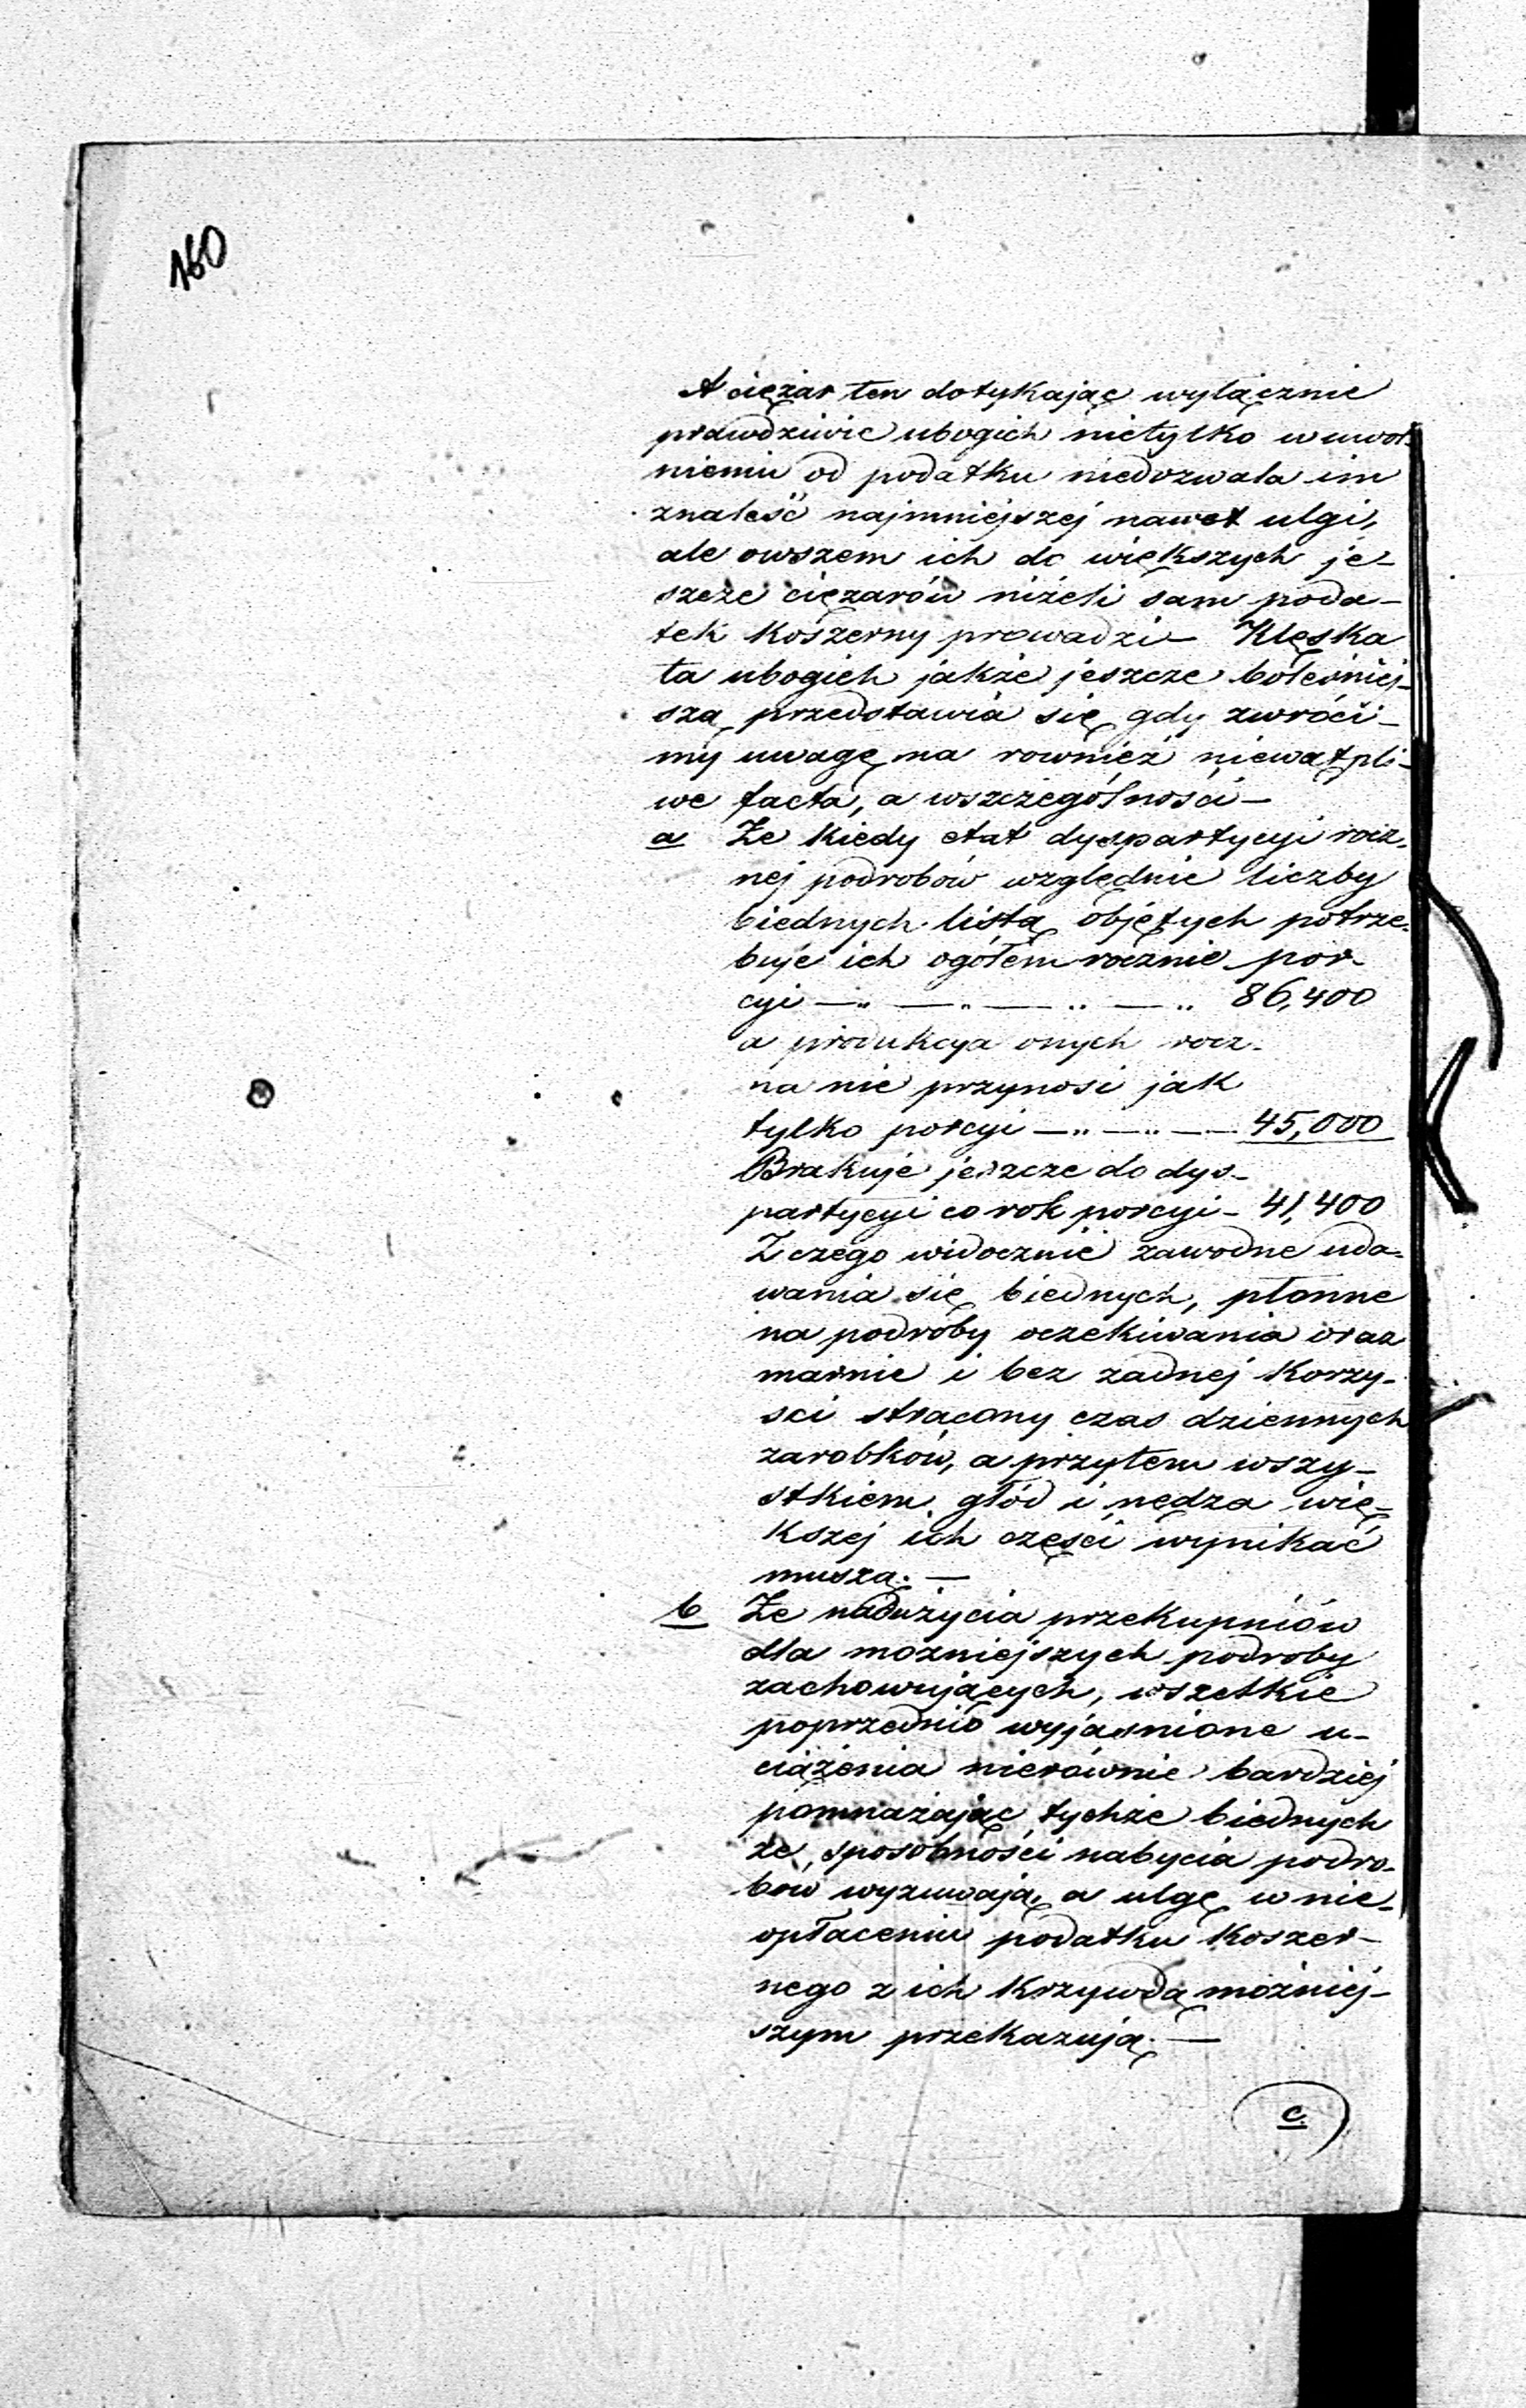 160
A ciężar ten dotykając wyłącznie
prawdziwie ubogich nietylko w uwol-
nieniu od podatku niedozwala im
znaleść najmniejszej nawet ulgi,
ale owszem ich do większych je-
szcze ciężarów niżeli sam poda-
tek koszerny prowadzi – Klęska
ta ubogich jakże jeszcze boleśniej-
szą przedstawia się gdy zwróci-
my uwagę na rownież niewątpli-
we facta, a wszczególności –
a Że kiedy etat dyspartycyi rocz-
nej podrobów względnie liczby
biednych listą objętych potrze-
buje ich ogółem rocznie por-
cyi —„ —„ — „ — „ 86,400
a produkcya onych rocz-
na nie przynosi jak
tylko porcyi —„ —„ — 45,000
Brakuje jeszcze do dys-
partycyi co rok porcyi – 41,400
Z czego widocznie zawodne uda-
wania się biednych, płonne
na podroby oczekiwania oraz
marnie i bez żadnej korzy-
sci stracony czas dziennych
zarobków, a przytem wszy-
stkiem głód i nędza wię-
kszej ich częsci wynikać
muszą. —
b Że nadużycia przekupniów
dla mozniejszych podroby
zachowujących, wszelkie
poprzednio wyjasnione u-
ciążenia nierównie bardziej
pomnażając tychże biednych
ze sposobności nabycia podro-
bów wyzuwają, a ulgę w nie-
opłaceniu podatku koszer-
nego z ich krzywdą możniej-
szym przekazują. —
c.